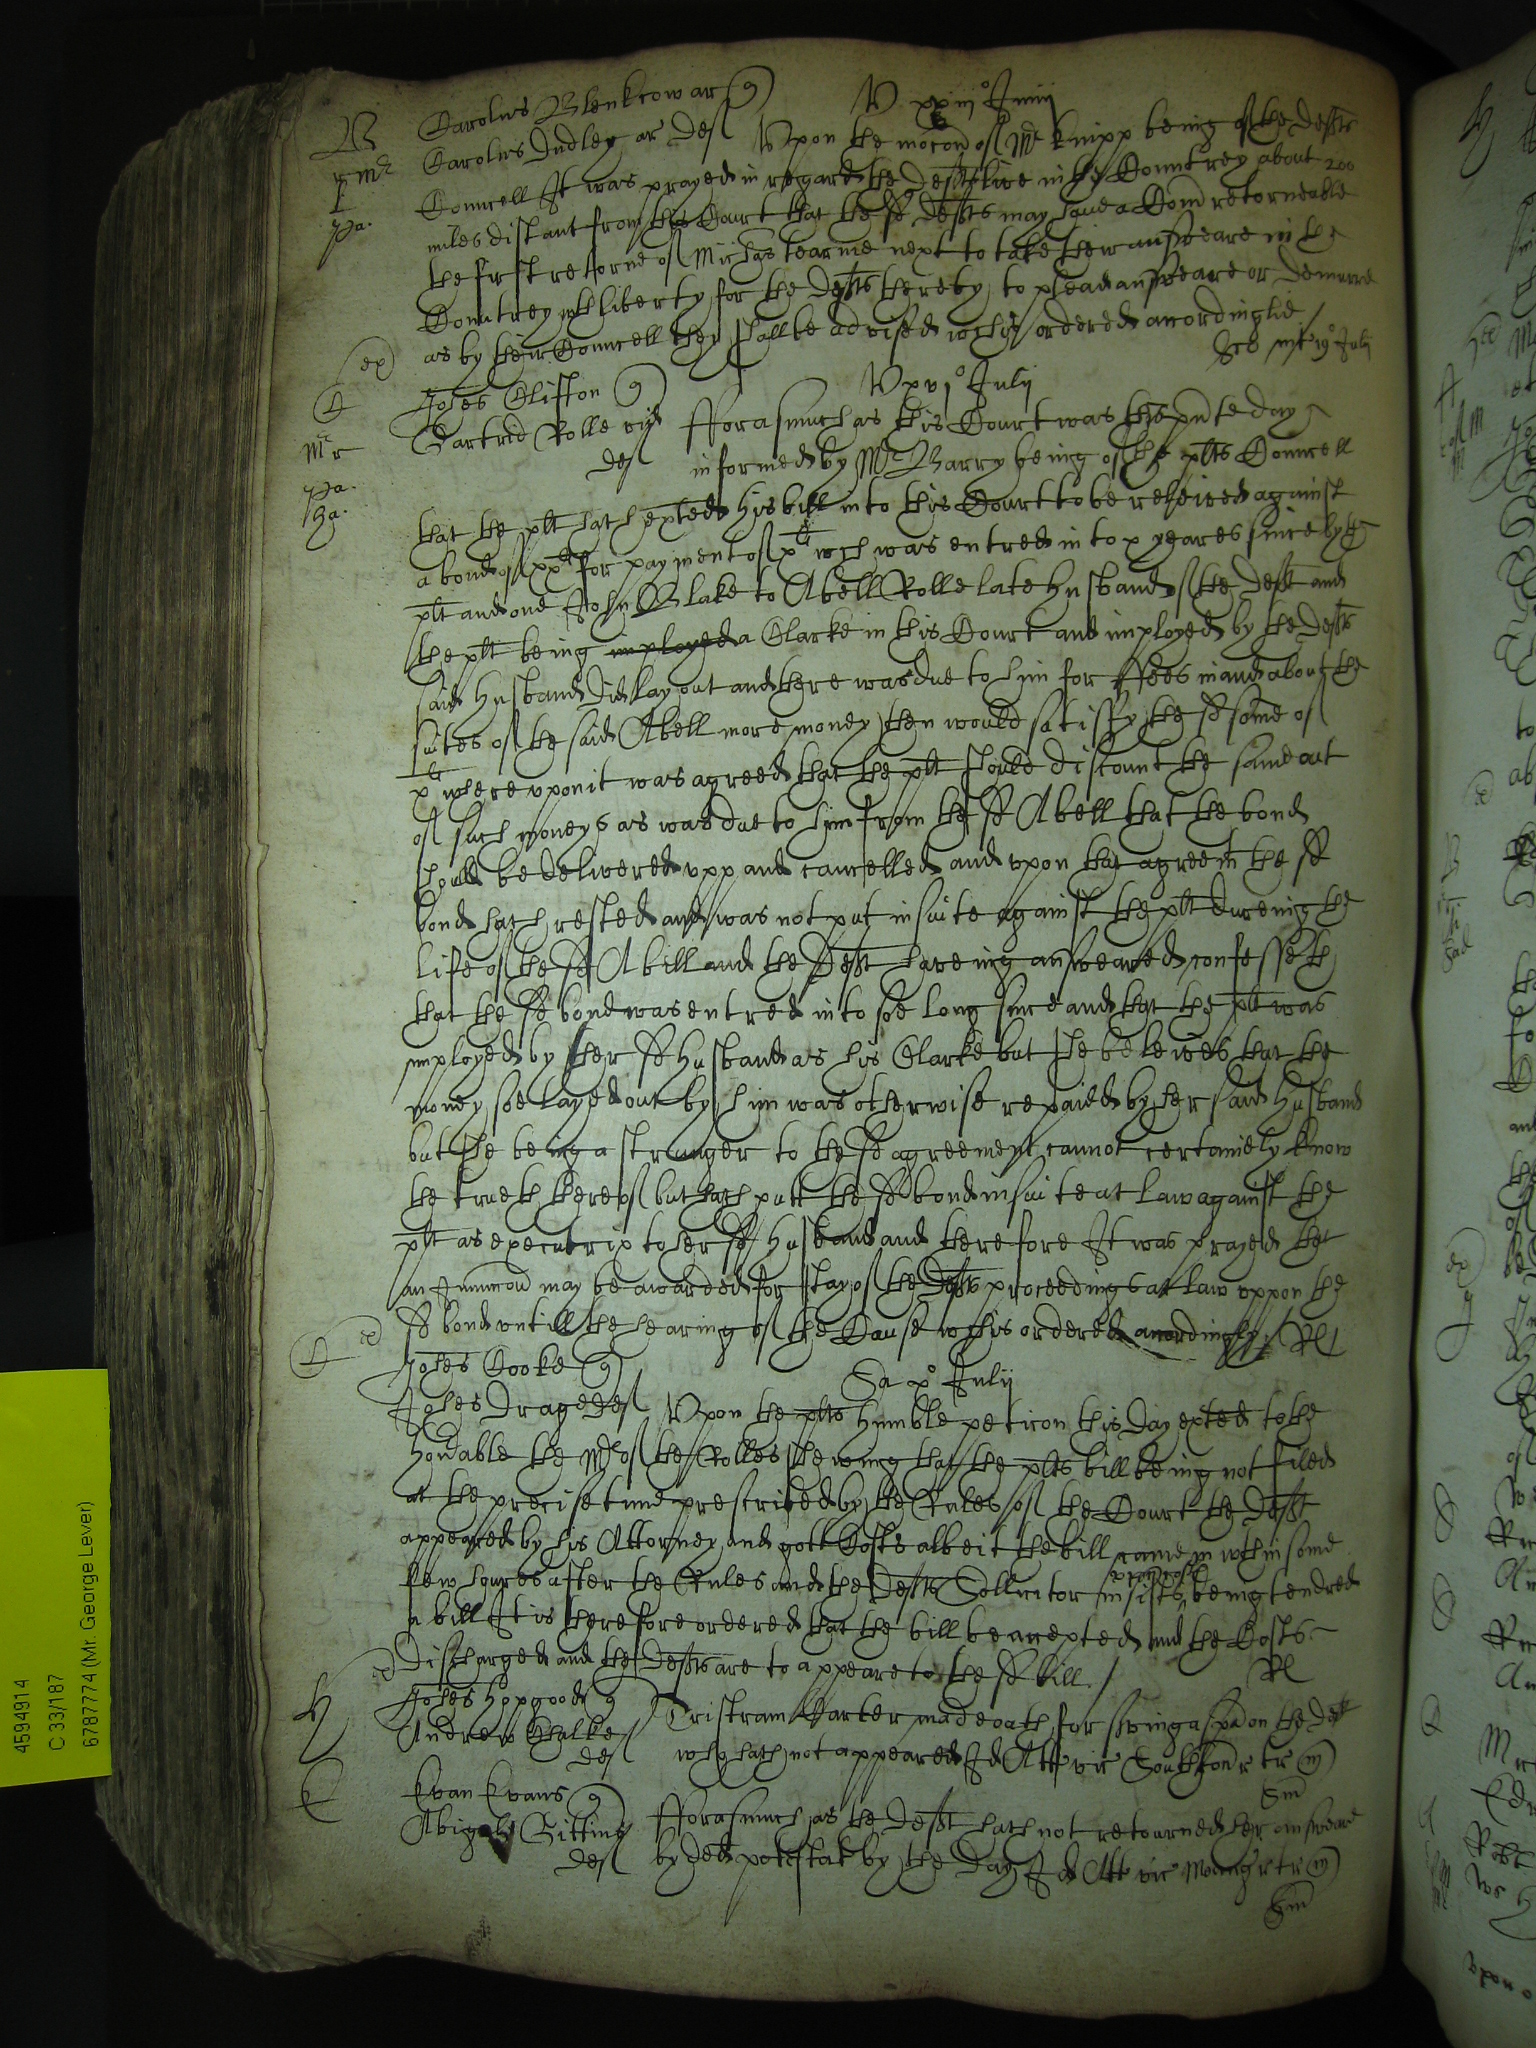 B Carolus Blenkcowe ar q V xxiij° Junij
r Mr Carolus Dudley ar def Vpon the mocon of Mr Knipp being of the defts
pa. Councell It was prayed in regard the defts live in the Countrey about 200
miles distant from this Court that the sd defts may have a Comn retorneable
the first retorne of Michas tearme next to take their answeare in the
Countrey wth liberty for the defts thereby to plead answeare or demurre
as by their Councell they shallbe advised wch is ordered accordinglie
ex
19° Julij
C Johes Clifton q V xvj° Julij
Mr r Gartrid Rolle vid Fforasmuch as this Court was this pnte day
def informed by Mr Barry being of the plts Councell
pa.
ha.
that the plt hath exted his bill into this Court to be releived against
a bond of xxli for payment of xli wch was entred into x yeares since by the
plt and one John Blake to Abell Rolle late husband of the deft and
the plt being imployed a Clarke in this Court and imployed by the defts
said husband did lay out and there was due to him for ffees in and about the
suites of the said Abell more money then would satisfy the sd some of
xli whereupon it was agreed that the plt should discount the same out
of such moneys as was due to him from the sd Abell that the bond
should be delivered vpp and cancelled and vpon that agreemt the sd
bond hath rested and was not put in suite against the plt dureing the
life of the sd Abell and the deft haveing answeared confesseth
that the sd bond was entred into soe long since and that the plt was
imployed by her sd husband as his Clarke but she beleives that the
money soe layed out by him was otherwise repaid by her said husband
but she being a stranger to the sd agreement cannot certainely know
the trueth thereof but hath putt the sd bond in suite at law against the
plt as executrix to her sd husband and therefore It was prayed that
an Iniunccon may be awarded for stay of the defts proceedings att law vppon the
sd bond vntill the hearing of the Cause wch is ordered accordingly / Rl
C Johes Cooke q Sa x° Julij
Johes Drage def Vpon the plts humble peticon this day exted to the
honoable the Mr of the Rolles shewing that the plts bill being not filed
at the precise time prescribed by the Rules of the Court the deft
appeared by his Attorney and gott Costs albeit the bill came in wthin some
few houres after the Rules and the defts Sollicitor insists vpon Costs being tendred
a bill It is therefore ordered that the bill be accepted and the Costs
discharged and the defts are to appeare to the sd bill / Rl
H Johes Hopgood q Tristram Harker made oath for serving a spa on the deft
Andrew Chalke def who hath not appeared Id Att vic Southton r tr m
Sm
E Evan Evans q Fforasmuch as the deft hath not retourned her answeare
Abigal Gitting def by ded potestat by the day Id Att vic r tr m
Sm
4594914
C 33/187
6787774 (Mr. George Lever)